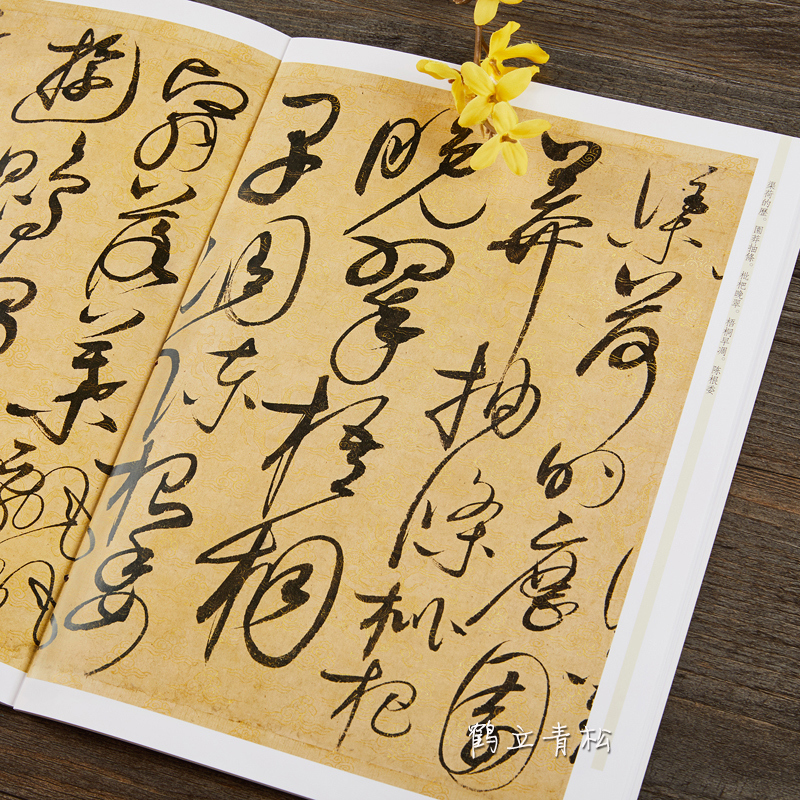 渠荷的歷。園莽抽條。枇杷晚翠。梧桐早凋。陈根委
渠荷的歷園
莽抽條枇杷
晚翠梧桐
早凋陳根委
翳落葉飄颻
遊鵾
鹤立青松